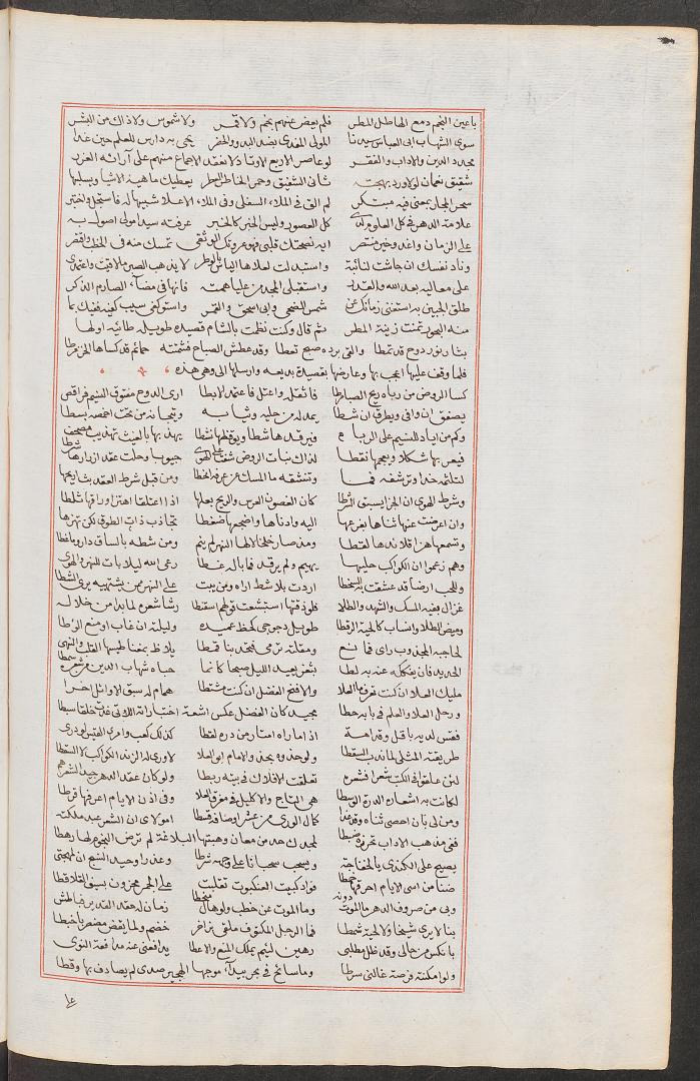 باعين النجم دمع الهاطل المطر فلم يعض عنهم نجم ولا قمر ولا شموس ولا ذاك من البشر
سوى الشهاب ابى العباس سيدنا المولى المفدى بضد البدو والحضر يحيى به دارس للعلم حين غدا
مجدد الدين والاداب والفقر لو عاصر الاربع الاوتاد لانعقد الاجماع منهم على آرائه الغرر
شقيق نعمان لولا ورد بهجته ثانى الشقيق وحمر الخاطر يعطيك ماهية الاشيا ويسلبها
سحر المجاز بمعنى فيه مبتكر لم الق فى الملاء السفلى وفى الملاء الاعلا شبيها له فاستجل واختبر
علامة الدهر فى كل العلوم لدى كل العصور وليس الخبر كالخبر عرفته سيدا مولى اصول به
على الزمان واغدو خير منتصر ايه نصحتك قلبى فهو عروتك الوثقى تمسك منه فى الخطب واقتفر
وناد نفسك ان جاشت لنائبة واستبدلت لعلاها الياس بالوطر لا يذهب الصبر ملاقيت واعتمدى
على معاليه بعد الله والقدر واستقبلى المجد من عليا همته فانها فى مضآء الصارم الذكر
طلق الجبين به استغنى زمانك عن شمس الضحى وبنى اسحق والقمر واستوكفى سيب كفيه ففيك بما
منه البحور تمنت زينة المطر ثم قال وكنت نظمت بالشام قصيدة طويلة طائية اولها
بشا رنور دوح قد تمطا والقى برده صبح تعطا وقد عطش الصباح فشمتته حمائم قد كساها المزن مرطا
فلما وقف عليها اعجب بها وعارضها بقصيدة بديعة وارسلها الى وهى هذه
كسا الروض من رياه ريح الصبا مرطا فاثقله واعتل فاعتمد الابطا ارى الدوح مفتوق النسيم فراقص
يصفق ان وافى ويطرق ان شطا يمد له من حليه وثيابه وتيجانه من تحت اخمصه بسطا
وكم من اياد للنسيم على الربا فيرقدها شطا ويوقظها نشطا يهذبها بالغيث تهذيب مصحف
فيعربها شكلا ويعجمها نقطا لذاك نبات الروض شقت على الهوى جيوبا وحلت عقد ازرارها شرطا
لتلثم خدا وترشفه فما وتنشقه ما المسك من عرفه انخطا ومن قبل شرط العقد بشايحها
وشرط الهوى ان الجزا يسبق الشرطا كان الغصون العرس والريح بعلها اذا اعتلقا اهتزا اوراقها شلطا
وان اعرضت عنها ثناها بفرعها اليه وادناها واضجعها ضغطا تجاذب ذات الطوق لكن تهزها
وتسمعها هزا قلاندها لغطا ومذ صار خلخالا لها النهر لم ينم ومن شطه بالساق داروما خطا
وهم زعموا ان الكواكب حليها يهيم ولم يرقد فما باله غطا رعى الله ليلا بات للنهر والهوى
وللحب ارضا قد عشقت به السخطا اردت بلا شط اراه ومن يبت على النهر من يشتهيه يرى الشطا
غزال بفيه المسك والشهد والطلا فلو ذقتها استشعت قولهم اسفنطا رشا شعره لما بدا من خلاله
وميض الطلا وانساب كالحية الرقطا طويل دجوجى كحظ عميده وليلته ان غاب او منع الرطا
لحاجبه المجذوب راى قانع ومقلته ترى فتجذبنا قطا يلاحظ بمغناطيسها القلب والنهى
الحديد فان ينفكله عنه به لطا بثغر يعيد الليل صبحا كانما حباه شهاب الدين من شعره سمطا
مليك العلا ان كنت تعرف ما العلا والا فخ الفضل ان كنت مشتطا همام له سبق الاوائل اخرا
ورحل العلا والعلم فى بابه حطا مجيد كان الفضل عكس اشعة اختباراته اللاتى غدت خلقا سبطا
فقس لديه باقل وقدامة اذا ما راه امتاز من دره لقطا كذلك كعب وامرئ القيس لودرى
طريقته المثلى لما ندب السقطا ولو حذوه يحذو الامام ابو العلا لاورى له الزند الكواكب لا السقطا
لئن علقوا فى الكتب شعرا فشعره تعلقت الافلاك فى بيته ربطا ولو كان عقد الدهر جيد الشعرهم
لكانت به اشعاره الدرة الوسطا هى التاج والاكليل فى مفرق العلا وفى اذن الايام اعرفها قرطا
ومن لى بان احصى ثناه وقد غدا كمال الورى من عشر اوصافه قسطا امولاى ان الشعر عبد ملكته
ففى مذهب الاداب تحرزه ضبطا لمجدك حد من معان وهبتها البلاغة لم ترض النجوم لها رهطا
يصيح على الكندى يالحناجة ويسحب سحبانا على وجهه شرطا وعذرا وحيد النسج ان لمهجتى
ضنا من اسى الايام احرقها خمطا فوادكبيت العنكبوت تقلبت على الجمر محزون بسيف القلا قطا
وبى من صروف الدهر ما الموت دونه وما الموت عن خطب ولو هال منحطا زمان له حقد القدير فباطش
بنا لا يرى شيخا ولا لحية شمطا فما الرجل المكتوف ملقى بزاخر خضم ولما يقض مضعر ناخبطا
بانكس من حالى وقد ظل مطلبى رهين لئيم يملك المنع والاعطا يدافعنى عنه مدافعة النوى
ولو امكنته فرصة غالنى سرطا وما سائح فى بحر بيدآء موجها الهجير صدى لم يصادف بها وقطا